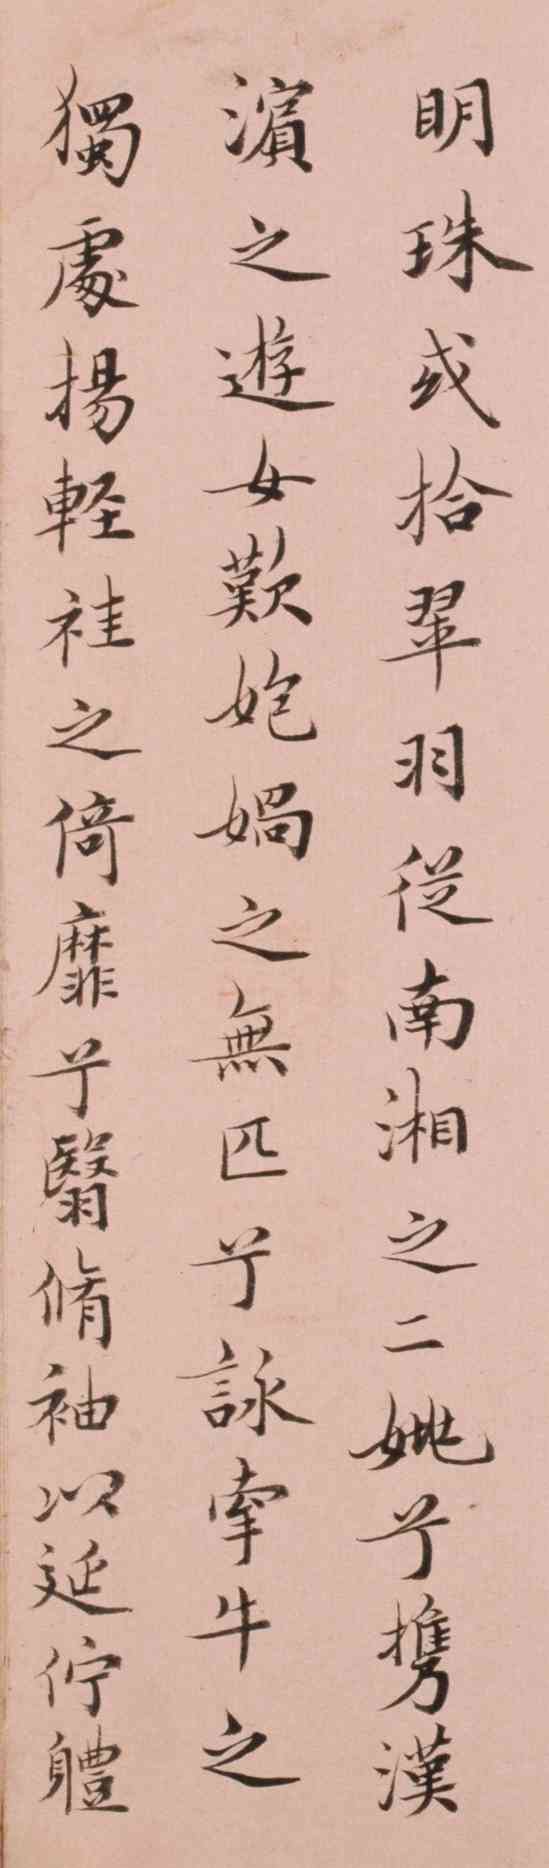 明珠或拾翠羽從南湘之二姚兮攜漢
濵之遊女歎媳媧之無匹兮詠牽牛之
獨處揚輕袿之倚靡兮翳脩袖以延佇軆